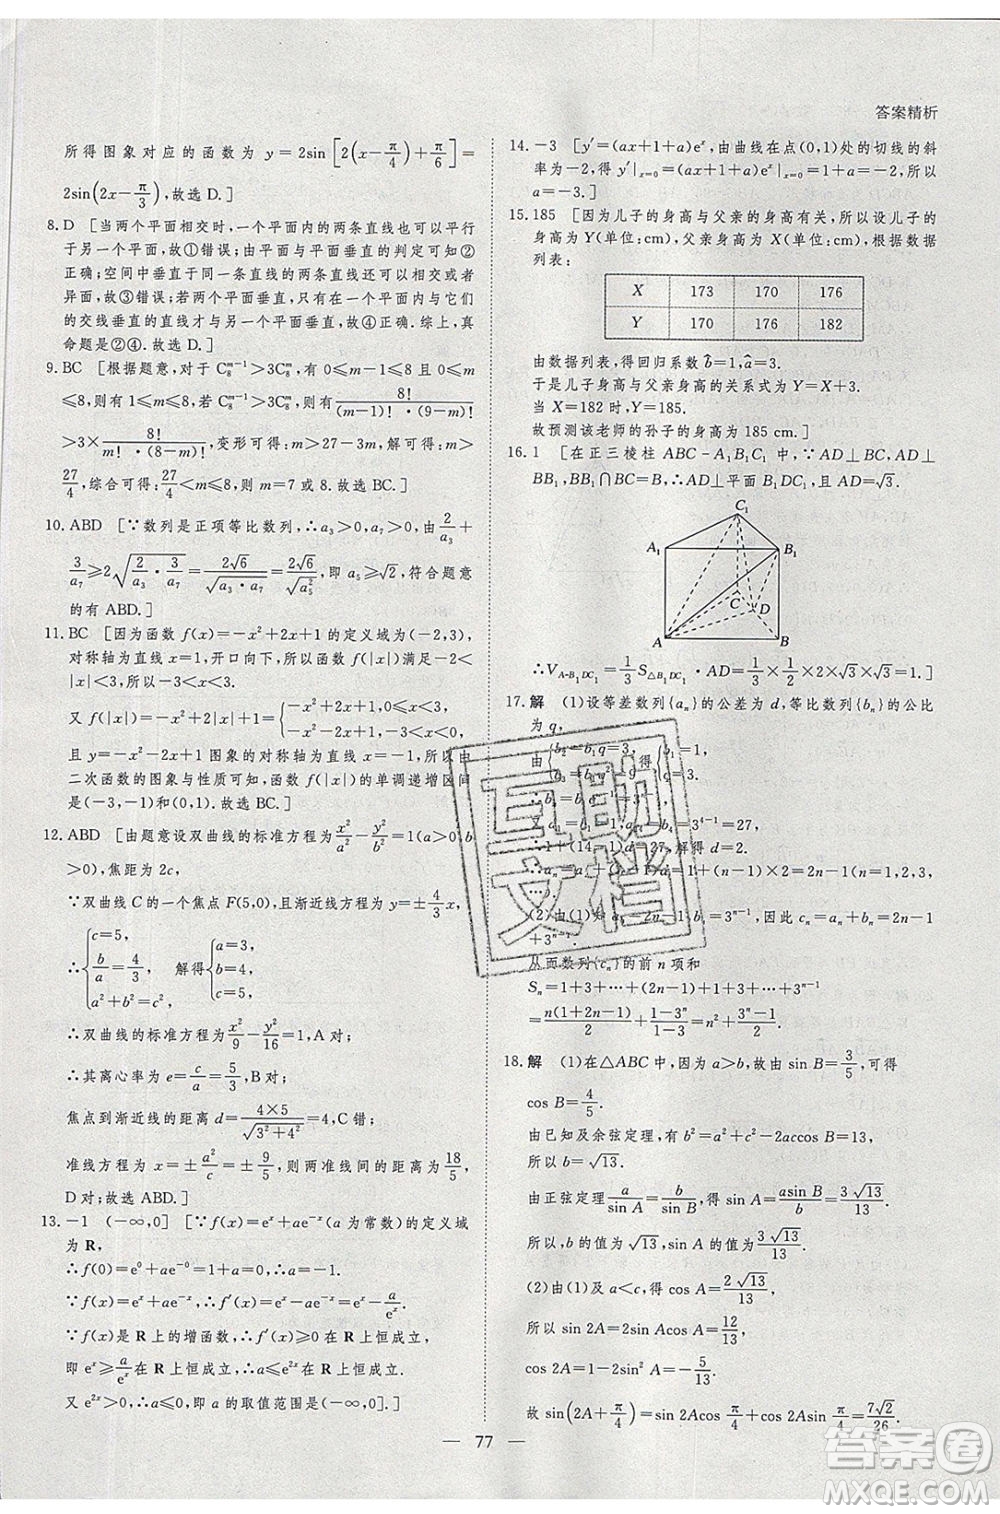 答案精析
所得图象对应的函数为 y=2sin[2(x-π/4)+π/6]=
2sin(2x-π/3),故选 D.]
8.D [当两个平面相交时,一个平面内的两条直线可以平行
于另一个平面,故①错误;由平面与平面垂直的判定可知②
正确;空间中垂直于同一条直线的两条直线还可以相交或者
异面,故③错误;若两个平面垂直,只有在一个平面内与它们
的交线垂直的直线才与另一个平面垂直,故④正确.综上,真
命题是②④.故选 D.]
9.BC [根据题意,对于 C₈^(m-1)>3C₈^m,有 0≤m-1≤8 且 0≤m
≤8,则有 1≤m≤8,若 C₈^(m-1)>3C₈^m,则有 8!/((m-1)!·(9-m)!)
>3×8!/(m!·(8-m)!),变形可得:m>27-3m,解可得:m>
27/4,综合可得:m=7 或 8.故选 BC.]
10.ABD [∵数列是正项等比数列,∴a₃>0,a₇>0,由 2/a₃+
3/a₇≥2√(2/a₃·3/a₇)=2√6/√(a₃·a₇)=2√6/√(a₅²),即 a₅≥√2,符合题
意的有 ABD.]
11.BC [因为函数 f(x)=-x²+2x+1 的定义域为(-2,3),
对称轴为直线 x=1,开口向下,所以函数 f(|x|)满足-2<
|x|<3,所以-3<x<3.
又 f(|x|)={-x²+2x+1,0≤x<3, -x²-2x+1,-3<x<0,
且 y=-x²-2x+1 图象的对称轴为直线 x=-1,所以由
二次函数的图象与性质可知,函数 f(|x|)的单调递增区间
是(-3,-1)和(0,1).故选 BC.]
12.ABD [由题意设双曲线的标准方程为 x²/a²-y²/b²=1(a>0,b
>0),焦距为 2c,
∵双曲线 C 的一个焦点 F(5,0),且渐近线方程为 y=±4/3x,
∴{c=5, b/a=4/3, a²+b²=c², 解得{a=3, b=4, c=5,
∴双曲线的标准方程为 x²/9-y²/16=1,A 对;
∴其离心率为 e=c/a=5/3,B 对;
焦点到渐近线的距离 d=4×5/√(3²+4²)=4,C 错;
准线方程为 x=±a²/c=±9/5,则两准线间的距离为 18/5,
D 对;故选 ABD.]
13.-1 (-∞,0] [∵f(x)=eˣ+ae⁻ˣ(a 为常数)的定义域
为 R,
∴f(0)=e⁰+ae⁻⁰=1+a=0,∴a=-1.
∵f(x)=eˣ+ae⁻ˣ,∴f′(x)=eˣ-ae⁻ˣ=eˣ-a/eˣ.
∵f(x)是 R 上的增函数,∴f′(x)≥0 在 R 上恒成立,
即 eˣ≥a/eˣ在 R 上恒成立,∴a≤e²ˣ在 R 上恒成立.
又 e²ˣ>0,∴a≤0,即 a 的取值范围是(-∞,0].]
14.-3 [y′=(ax+1+a)eˣ,由曲线在点(0,1)处的切线的斜
率为-2,得 y′|ₓ₌₀=(ax+1+a)eˣ|ₓ₌₀=1+a=-2,所以
a=-3.]
15.185 [因为儿子的身高与父亲的身高有关,所以设儿子的
身高为 Y(单位:cm),父亲身高为 X(单位:cm),根据数据
列表:
X 173 170 176
Y 170 176 182
由数据列表,得回归系数 b̂=1,â=3.
于是儿子身高与父亲身高的关系式为 Y=X+3.
当 X=182 时,Y=185.
故预测该老师的孙子的身高为 185 cm.]
16.1 [在正三棱柱 ABC-A₁B₁C₁ 中,∵AD⊥BC,AD⊥
BB₁,BB₁∩BC=B,∴AD⊥平面 B₁DC₁,且AD=√3.
C₁
A₁ B₁
C
D
A B
∴V_(A-B₁DC₁)=1/3S_(△B₁DC₁)·AD=1/3×1/2×2×√3×√3=1.]
17.解 (1)设等差数列{aₙ}的公差为 d,等比数列{bₙ}的公比
为 q,
由{b₂=b₁q=3, 得{b₁=1,
∴1+(14-1)d=27,解得 d=2.
(2)由(1)知 aₙ=2n-1,bₙ=3ⁿ⁻¹,因此 cₙ=2n-1
+3ⁿ⁻¹.
从而数列{cₙ}的前 n 项和
Sₙ=1+3+…+(2n-1)+1+3+…+3ⁿ⁻¹
=n(1+2n-1)/2+(1-3ⁿ)/(1-3)=n²+(3ⁿ-1)/2.
18.解 (1)在△ABC 中,因为 a>b,故由 sin B=3/5,可得
cos B=4/5.
由已知及余弦定理,有 b²=a²+c²-2accos B=13,
所以 b=√13.
由正弦定理 a/sin A=b/sin B,得 sin A=asin B/b=3√13/13.
所以,b 的值为√13,sin A 的值为 3√13/13.
(2)由(1)及 a<c,得 cos A=2√13/13,
所以 sin 2A=2sin Acos A=12/13,
cos 2A=1-2sin² A=-5/13.
故 sin(2A+π/4)=sin 2Acos π/4+cos 2Asin π/4=7√2/26.
77
互助
文档
答案卷
MXQE.COM